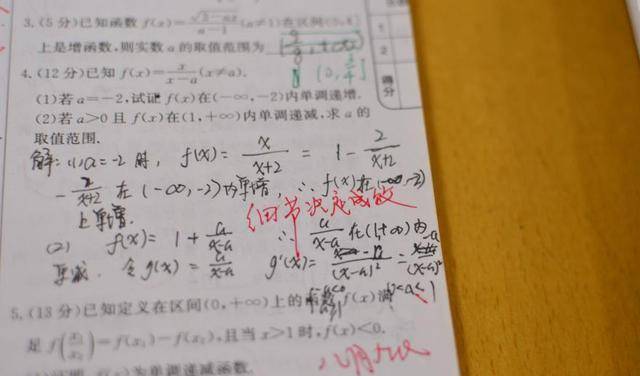 3.(5分)已知函数 f(x)=√(3-ax)/(a-1) (a≠1)在区间(0,4]
上是增函数,则实数 a 的取值范围为
4.(12分)已知 f(x)=x/(x-a)(x≠a).
(1)若 a=-2,试证 f(x)在(-∞,-2)内单调递增.
(2)若 a>0 且 f(x)在(1,+∞)内单调递减,求 a 的
取值范围.
解:(1)a=-2 时, f(x)=x/(x+2)=1-2/(x+2)
-2/(x+2) 在(-∞,-2)内单增, ∴f(x)在(-∞,-2)
上单增.
细节决定成败
(2) f(x)=1+a/(x-a) ∴a/(x-a)在(1,+∞)内
单减. 令g(x)=a/(x-a) g'(x)= =-a/(x-a)²
5.(13分)已知定义在区间(0,+∞)上的函数 f(x)满
0<a≤1
足 f(x₁/x₂)=f(x₁)-f(x₂),且当 x>1 时,f(x)<0.
f(x)为单调递减函数.
得分
1
2